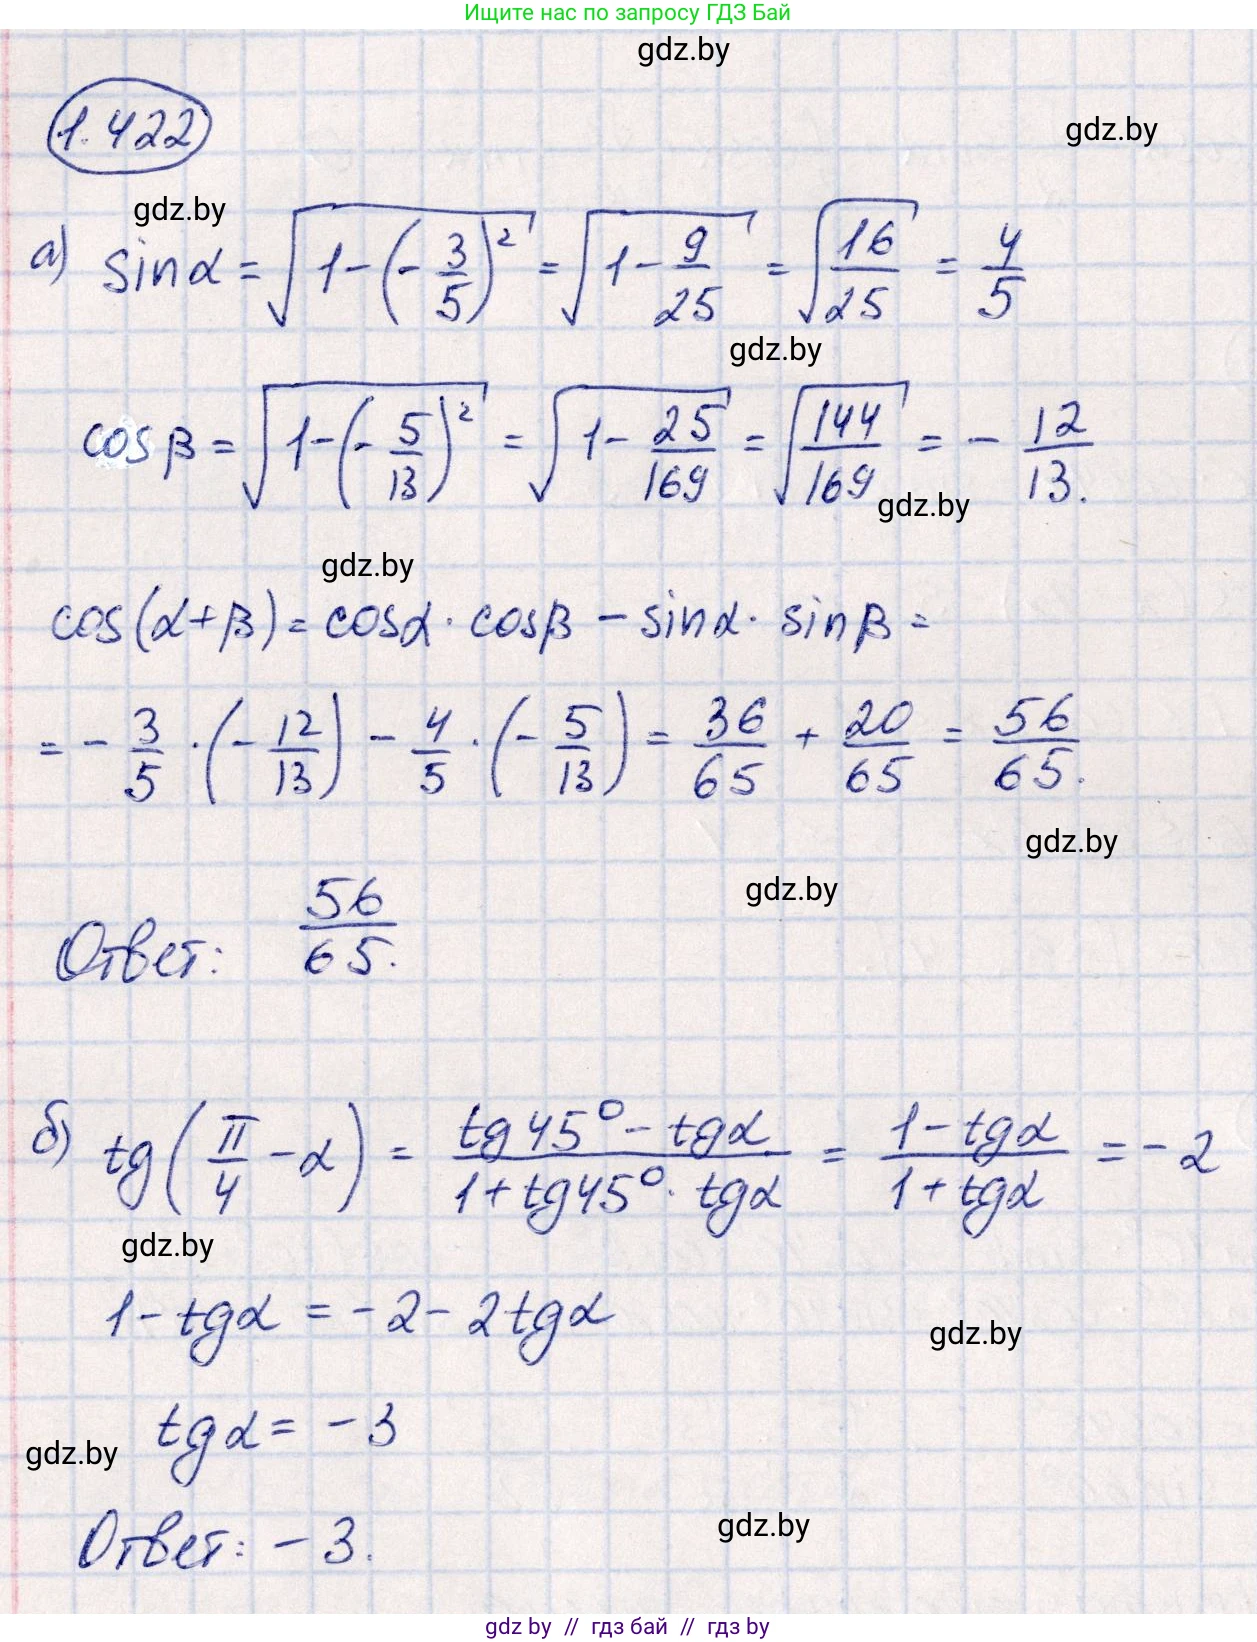 Ищите нас по запросу ГДЗ Бай
gdz.by
1.422
gdz.by
gdz.by
а) sin α = √(1 - (-3/5)²) = √(1 - 9/25) = √(16/25) = 4/5
gdz.by
cos β = √(1 - (-5/13)²) = √(1 - 25/169) = √(144/169) = - 12/13.
gdz.by
gdz.by
cos(α+β) = cosα · cosβ - sinα · sinβ =
= - 3/5 · (- 12/13) - 4/5 · (- 5/13) = 36/65 + 20/65 = 56/65.
gdz.by
gdz.by
Ответ: 56/65.
б) tg(π/4 - α) = (tg45° - tgα)/(1 + tg45° · tgα) = (1 - tgα)/(1 + tgα) = - 2
gdz.by
1 - tgα = - 2 - 2tgα
gdz.by
tgα = - 3
gdz.by
gdz.by
Ответ: - 3.
gdz.by // гдз бай // гдз by